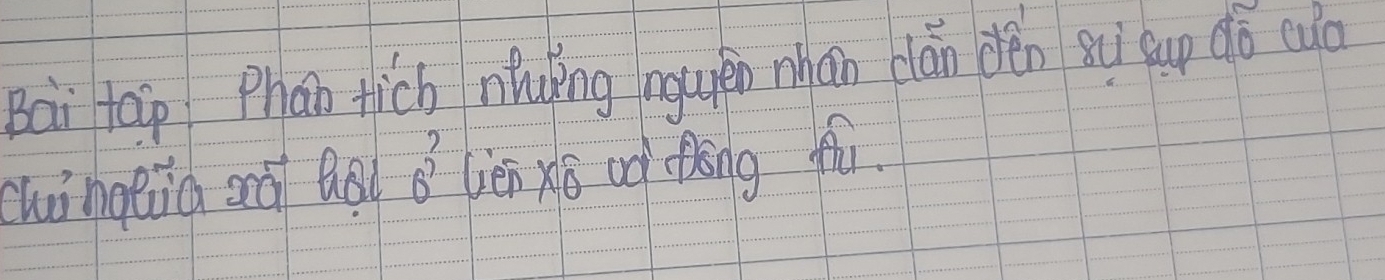 Bài tập: Phân tích những nguyên nhân dẫn đến sự sụp đổ của
chủ nghĩa xã hội ở Liên Xô và Đông Âu.